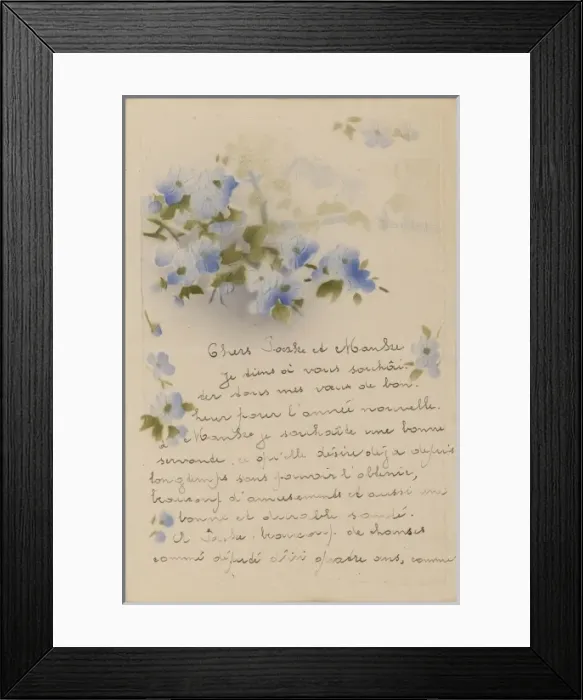 Chers Parke et Manbre
je tiens à vous souhai-
ter tous mes vœux de bon-
heur pour l'année nouvelle.
à Manbre je souhaite une bonne
servante, ce qu'elle désire déja depuis
longtemps sans pouvoir l'obtenir,
beaucoup d'amusements et aussi une
bonne et durable santé.
A Parke beaucoup de chances
comme député d'ici quatre ans, comme